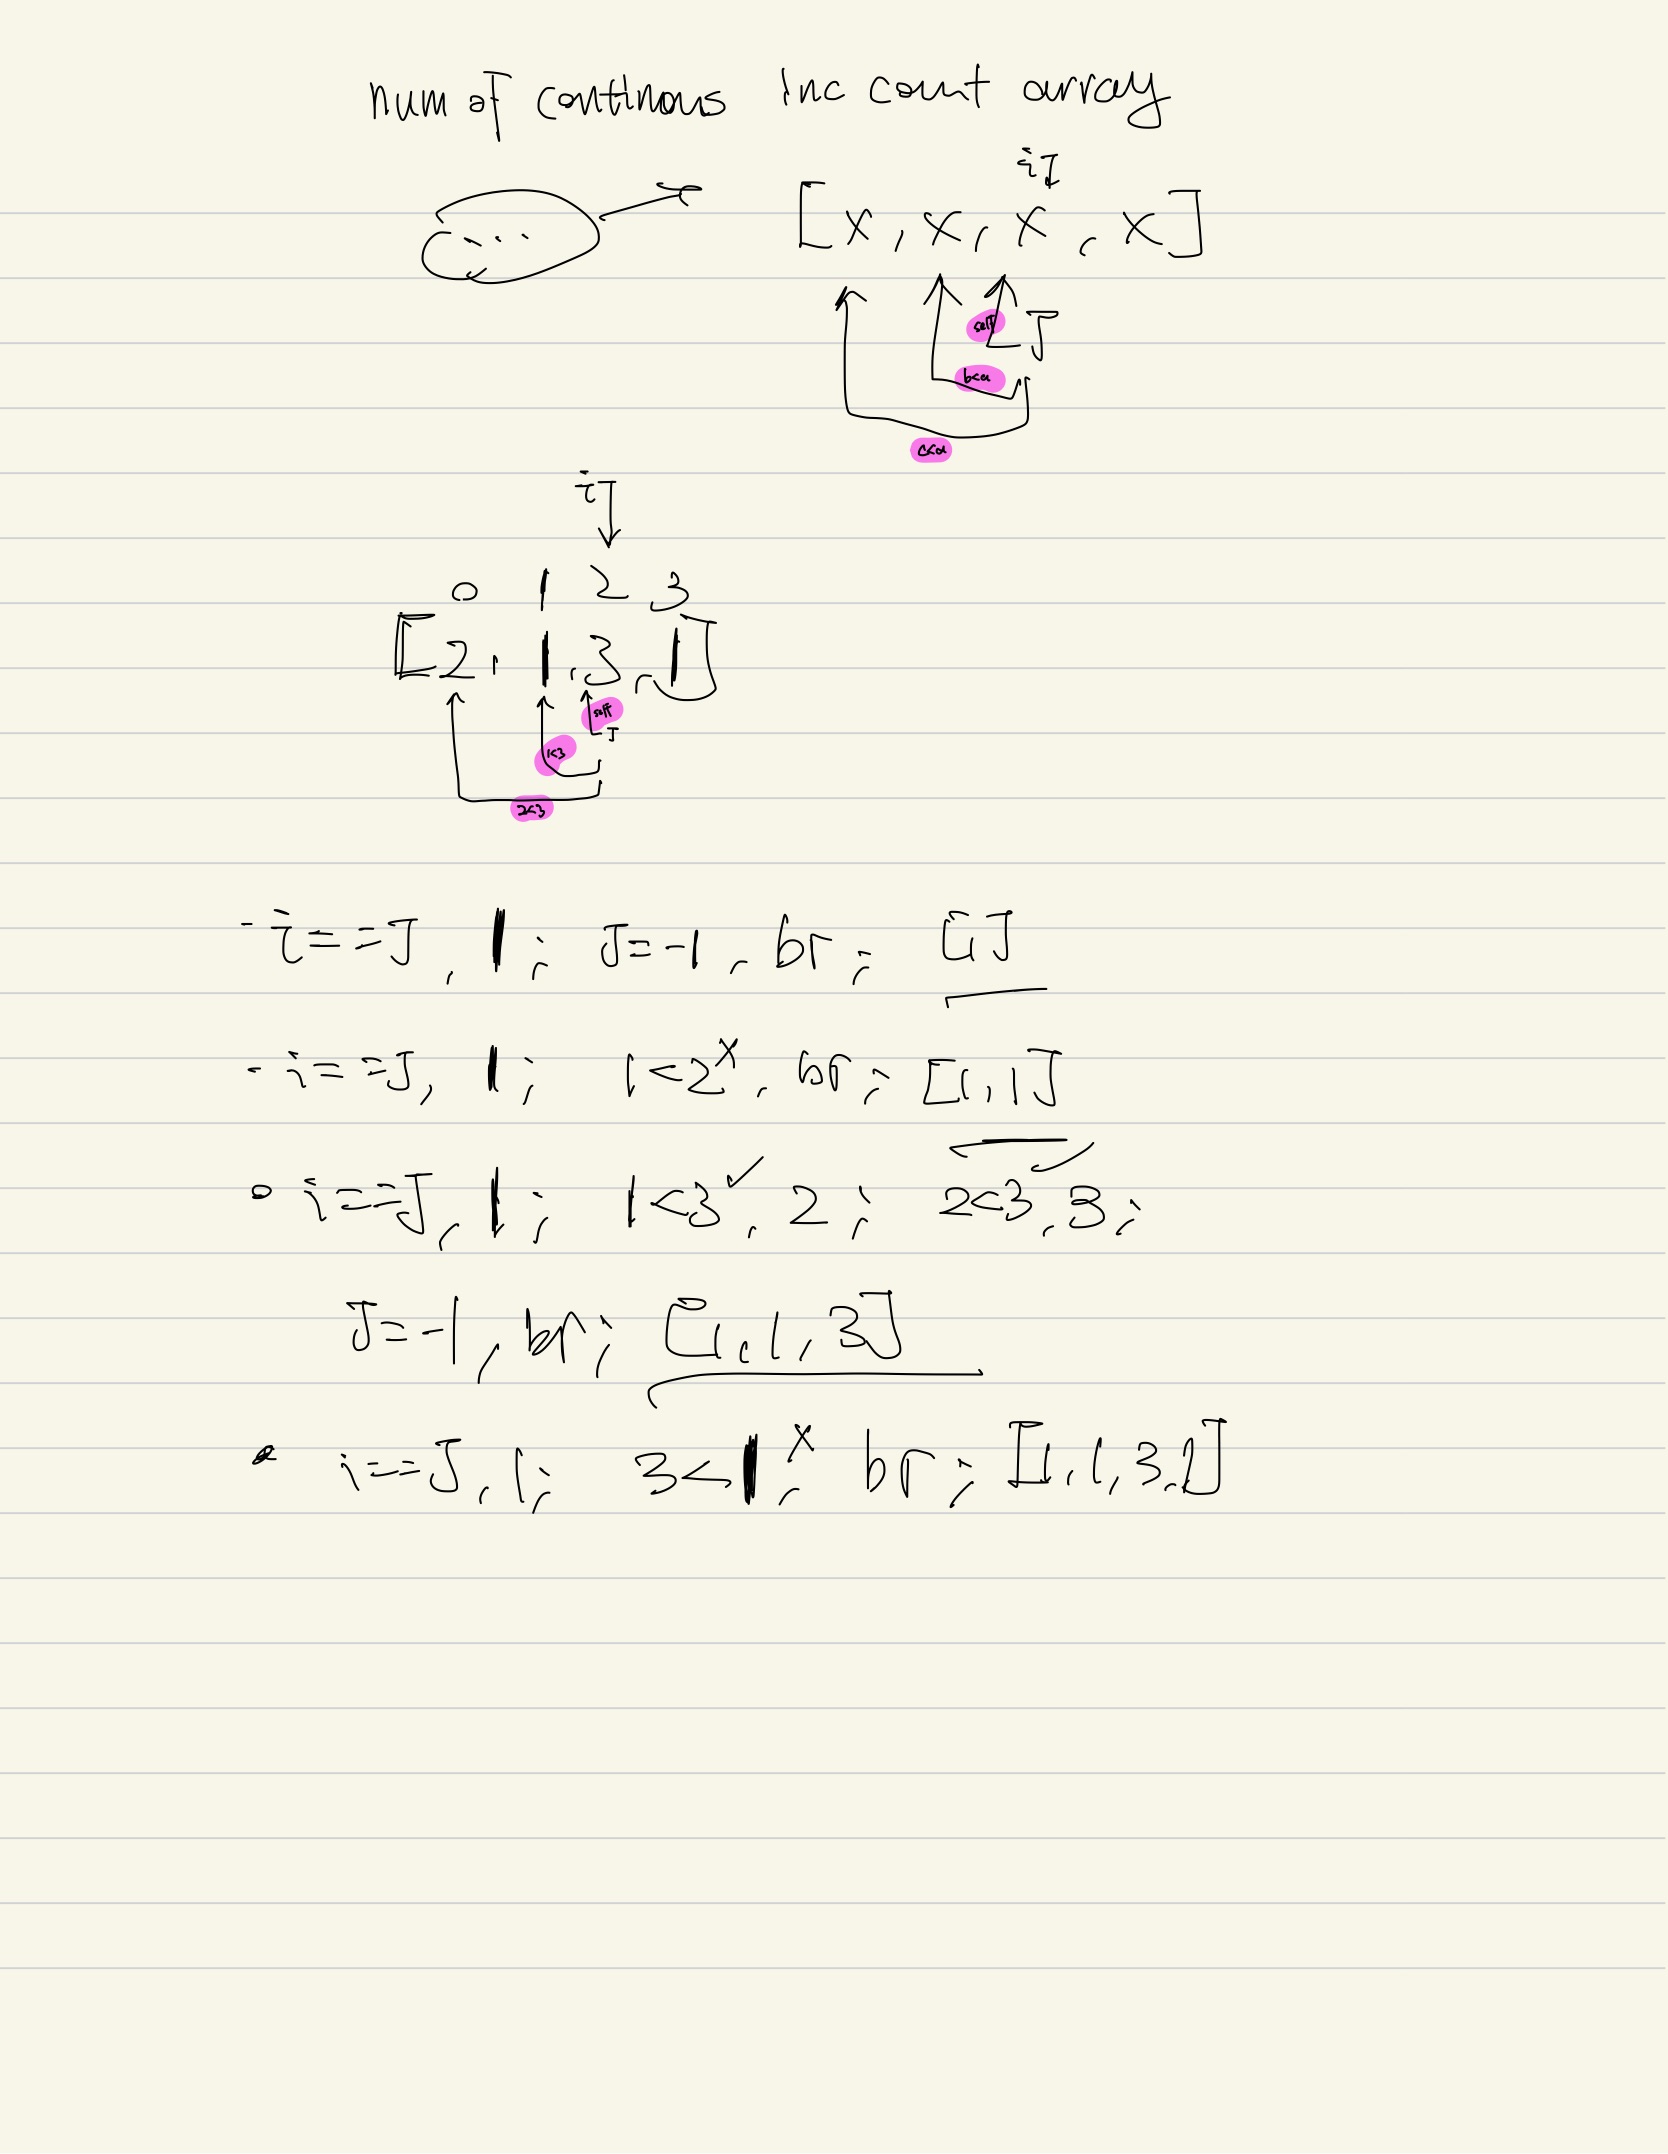 num of continous inc count array
i↓
[x, x, x, x]
self J
b<a
c<a
i↓
0 1 2 3
[2, 1, 3, 1]
self J
1<3
2<3
- i==J, 1; J=-1, br; [1]
- i==J, 1; 1<2 x, br; [1,1]
• i==J, 1; 1<3 ✓, 2; 2<3, 3;
J=-1, br; [1,1,3]
• i==J, 1; 3<1 x, br; [1,1,3,1]